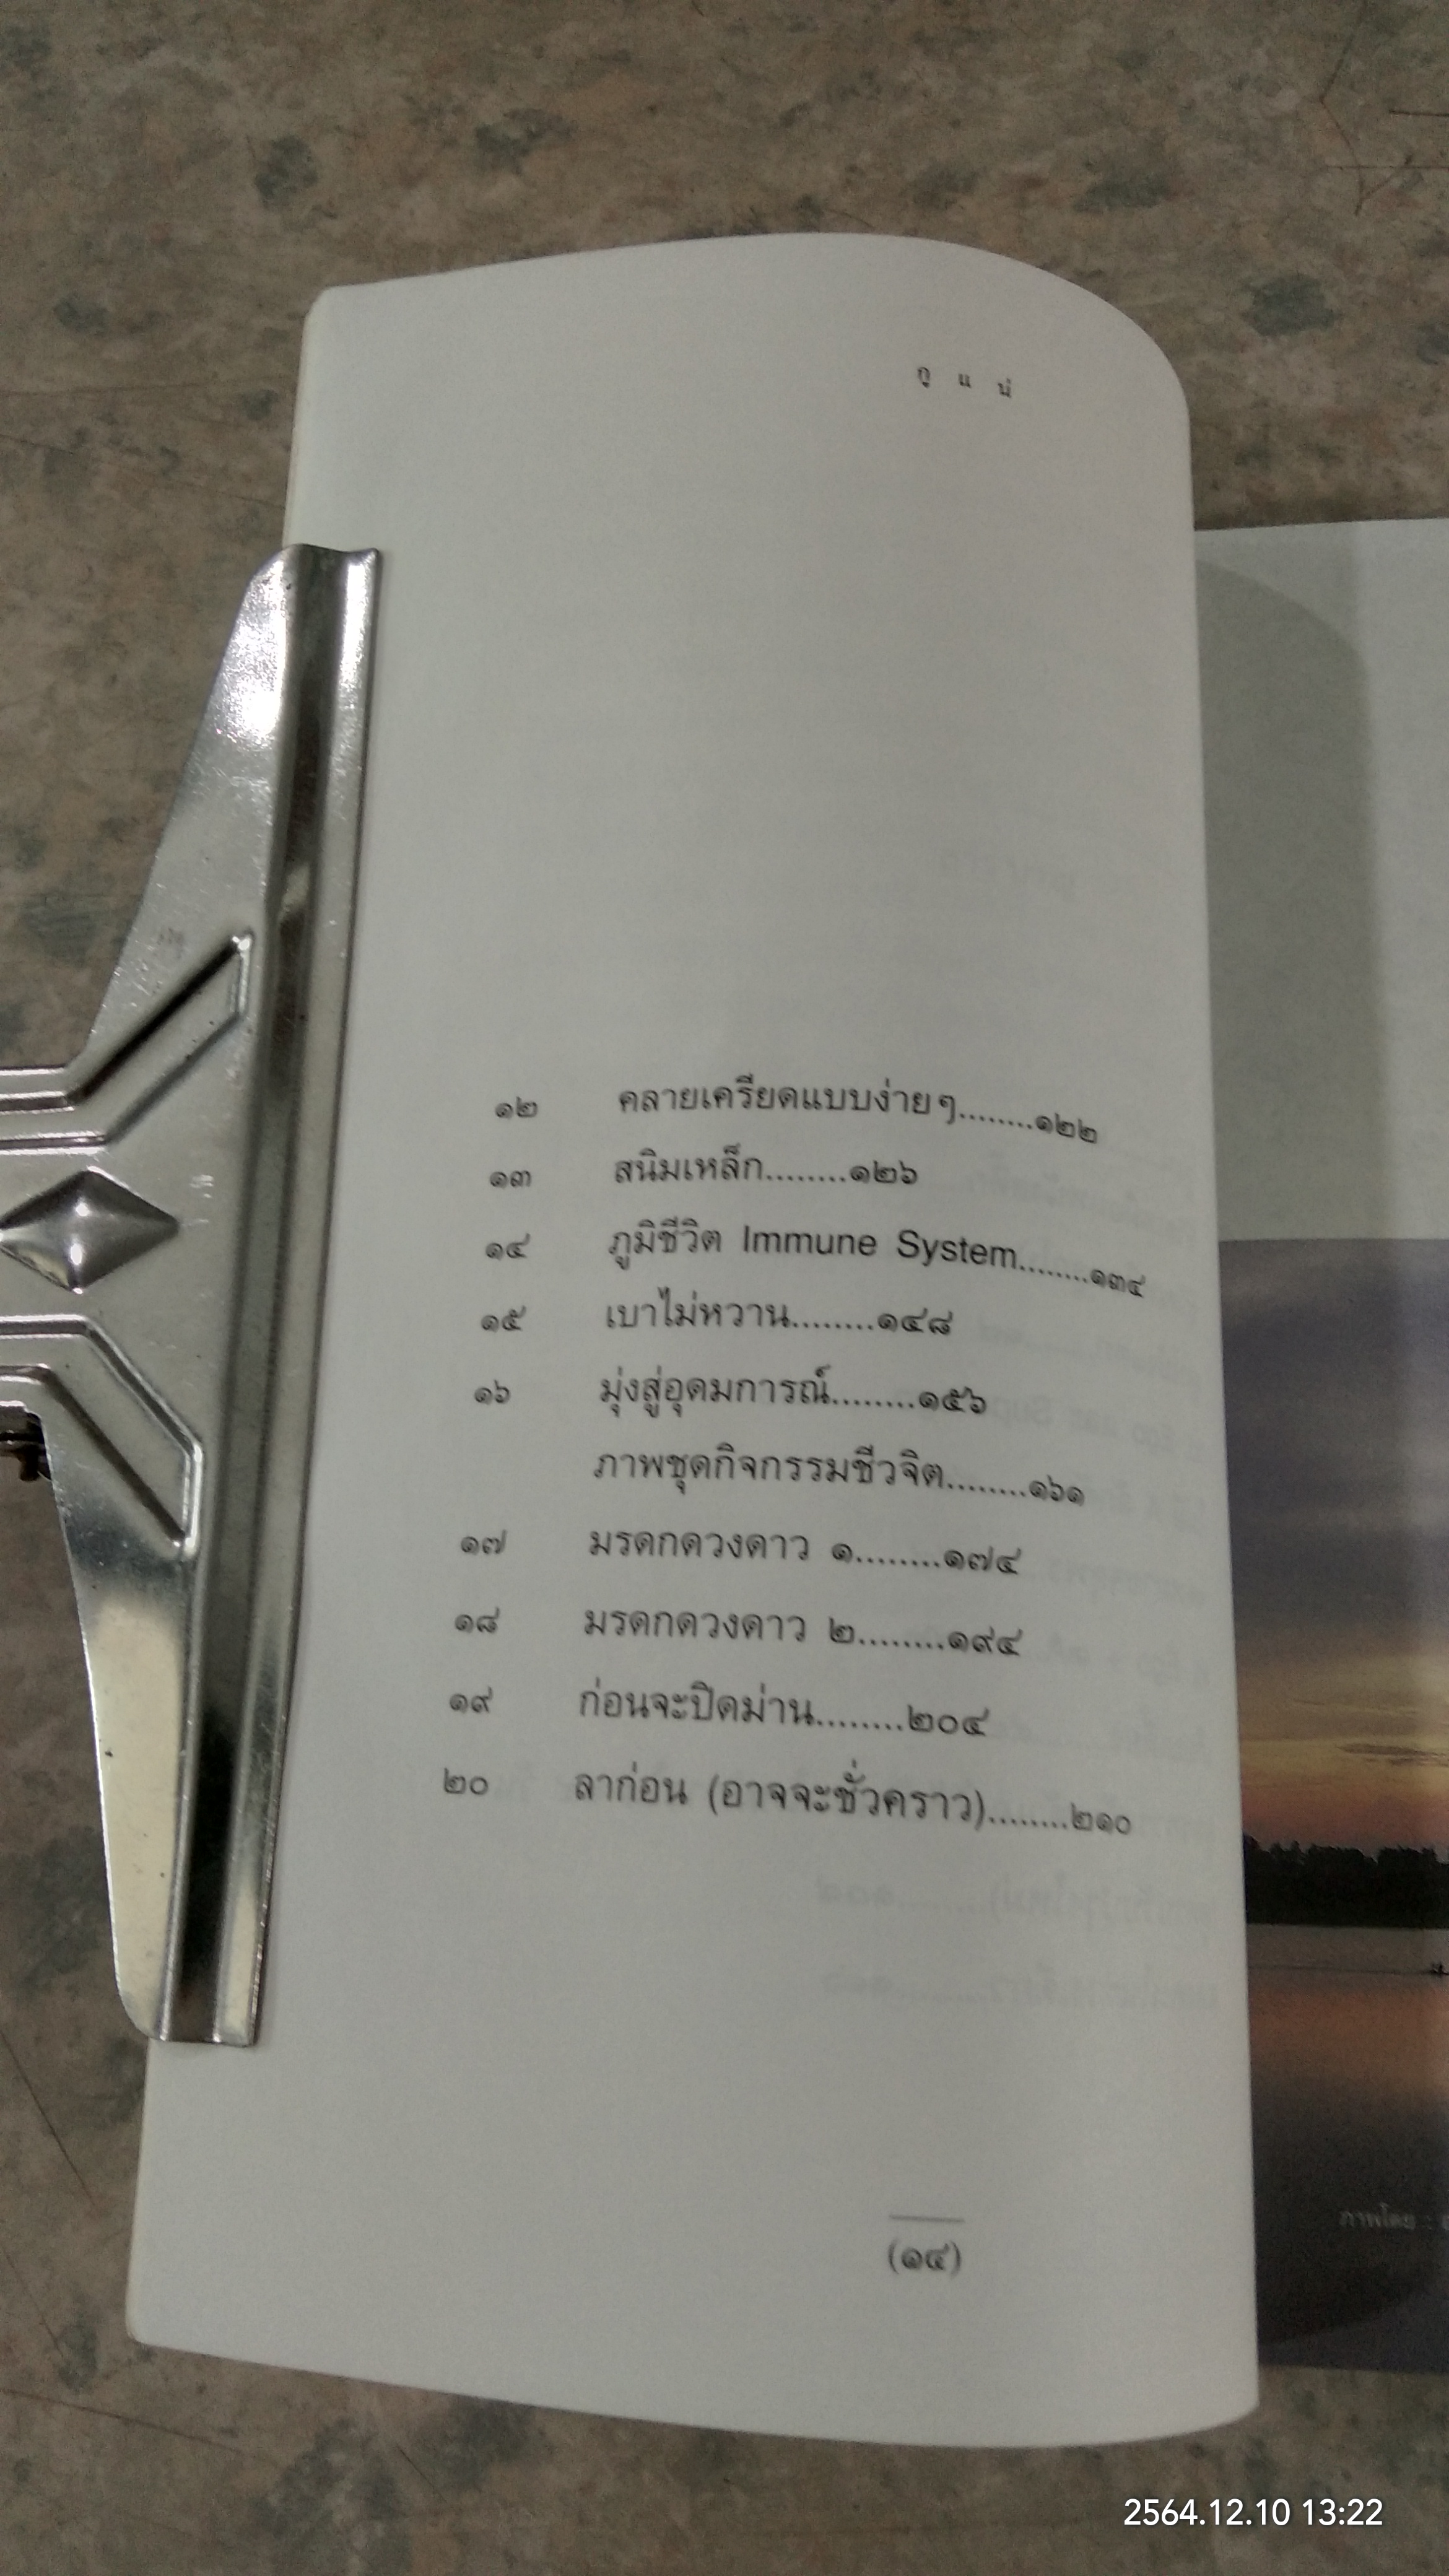 กู แ น่
๑๒ คลายเครียดแบบง่ายๆ........๑๒๒
๑๓ สนิมเหล็ก........๑๒๖
๑๔ ภูมิชีวิต Immune System........๑๓๔
๑๕ เบาไม่หวาน........๑๔๘
๑๖ มุ่งสู่อุดมการณ์........๑๕๖
ภาพชุดกิจกรรมชีวจิต........๑๖๑
๑๗ มรดกดวงดาว ๑........๑๗๔
๑๘ มรดกดวงดาว ๒........๑๙๔
๑๙ ก่อนจะปิดม่าน........๒๐๔
๒๐ ลาก่อน (อาจจะชั่วคราว)........๒๑๐
ภาพโดย :
(๑๔)
2564.12.10 13:22